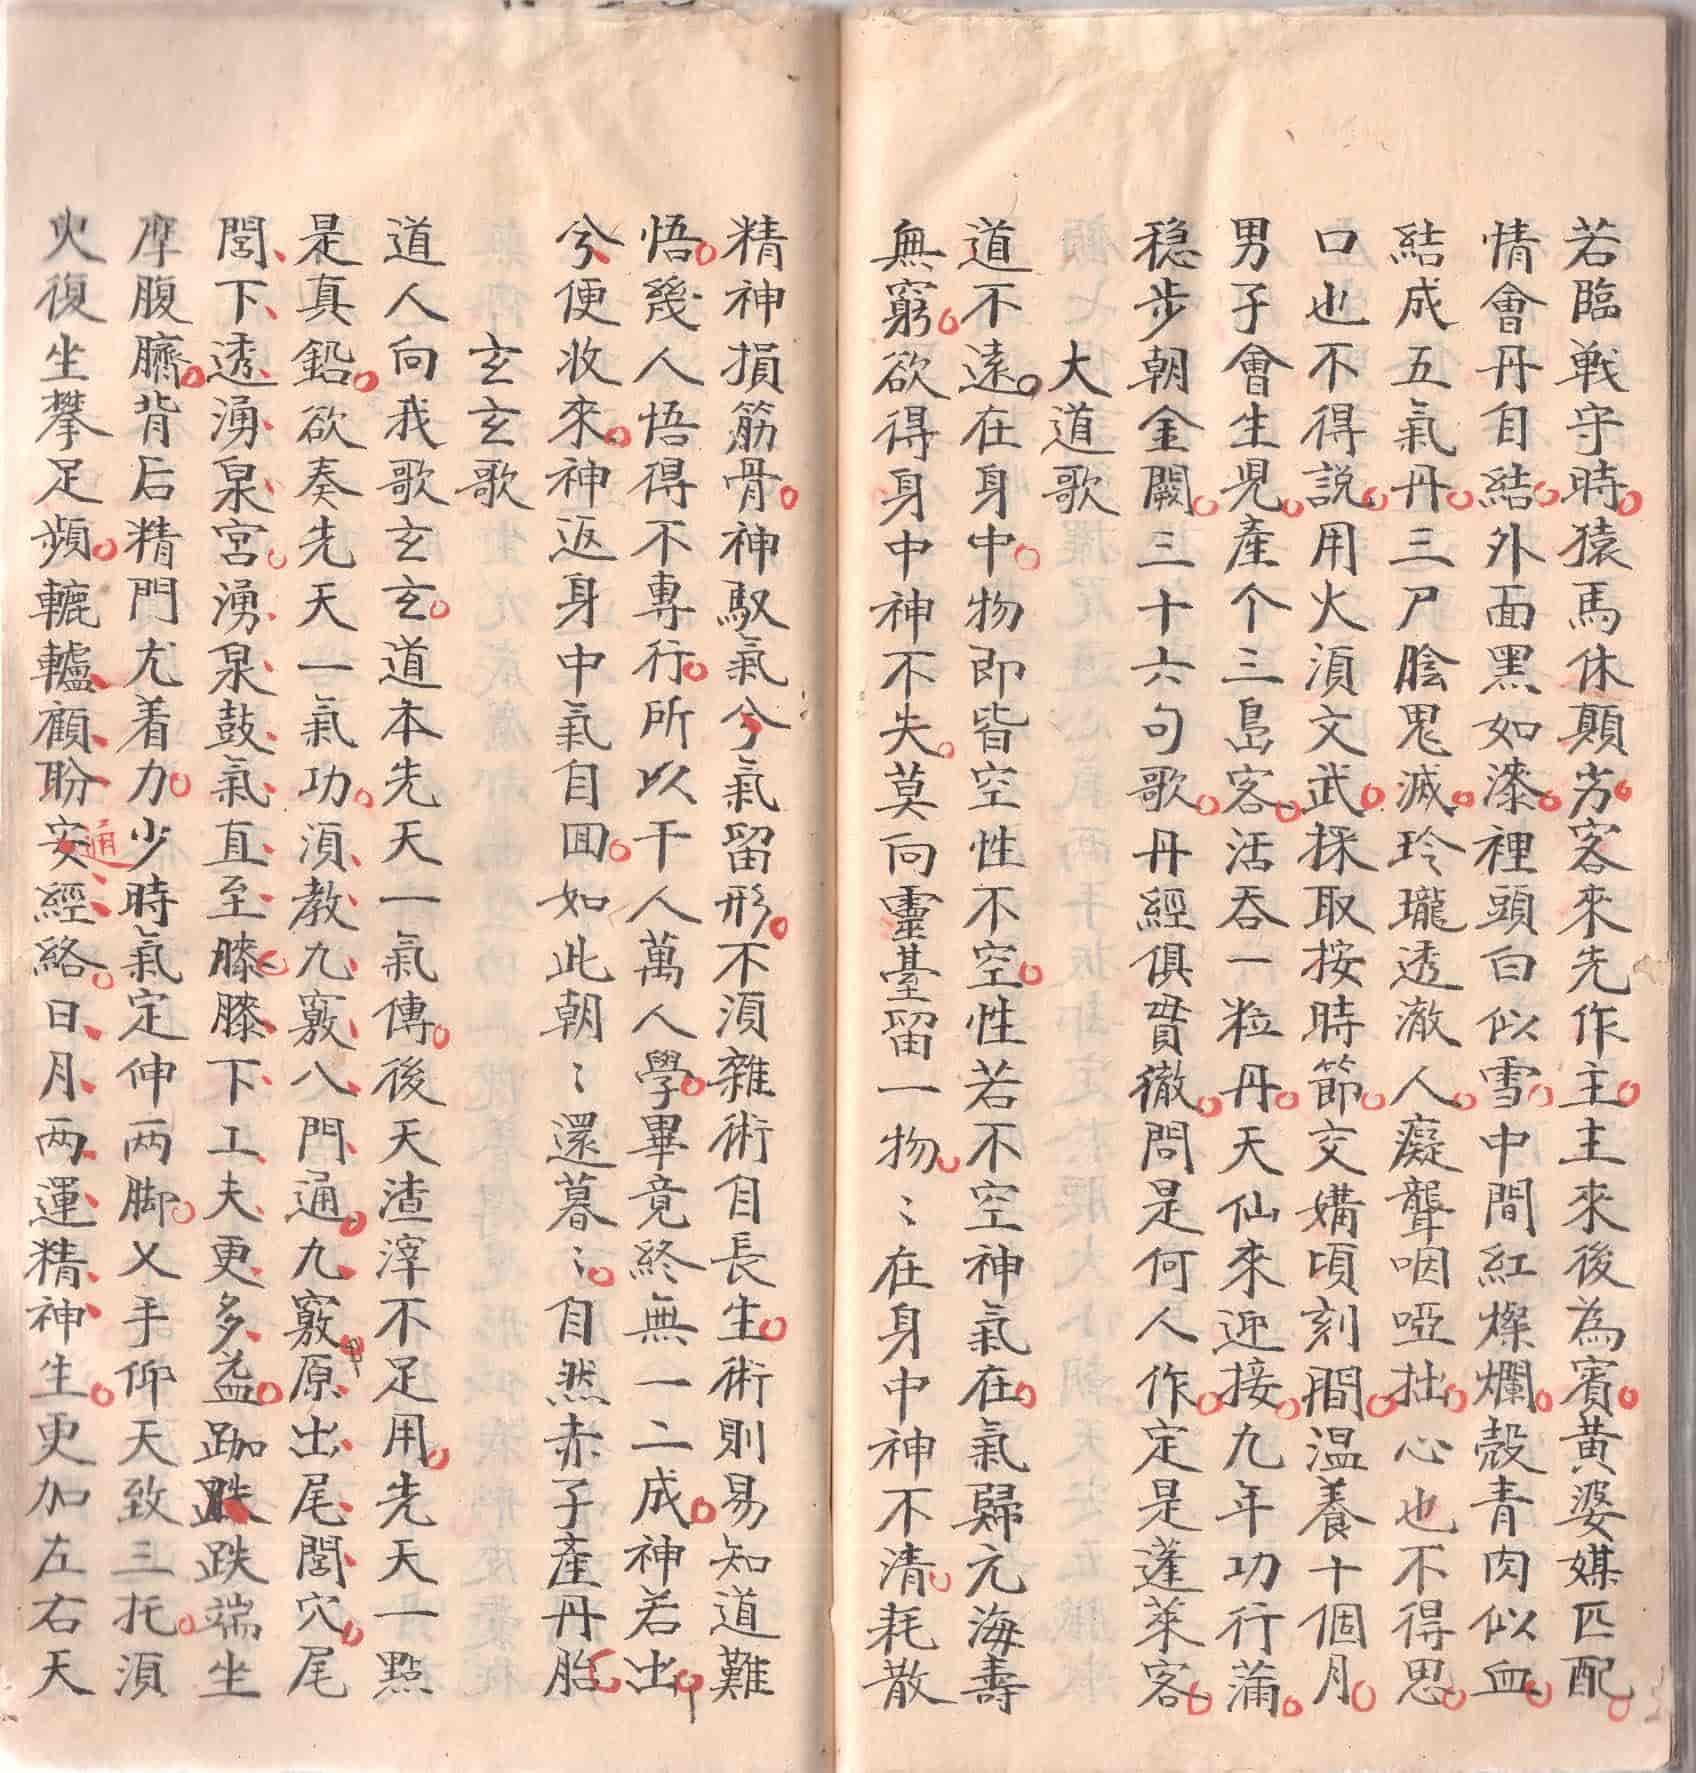 若臨戰守時猿馬休顛劣客來先作主主來後為賓黃婆媒匹配
情會丹自結外面黑如漆裡頭白似雪中間紅燦爛殼青肉似血
結成五氣丹三尸陰鬼滅玲瓏透澈人癡聾咽啞拙心也不得思
口也不得説用火湏文武採取按時節交媾頃刻間温養十個月
男子會生兒產个三島客活吞一粒丹天仙來迎接九年功行蒲
穩步朝金闕三十六句歌丹經俱貫徹問是何人作定是蓬萊客
大道歌
道不遠在身中物即皆空性不空性若不空神氣在氣歸元海壽
無窮欲得身中神不失莫向靈臺留一物〻在身中神不清耗散
精神損筋骨神馭氣兮氣留形不湏雜術自長生術則易知道難
悟幾人悟得不專行所以千人萬人學畢竟終無一二成神若出
兮便收來神返身中氣自囬如此朝〻還暮〻自然赤子產丹胎
玄玄歌
道人向我歌玄玄道本先天一氣傳後天渣滓不足用先天一點
是真鉛欲奏先天一氣功湏教九竅八門通九竅原出尾閭穴尾
閭下透湧泉宮湧泉鼓氣直至膝膝下工夫更多益跏趺跌端坐
摩腹臍背后精門尤着力少時氣定伸两脚乂手仰天致三托湏
火復生攀足頻轆轤顧盼安通經絡日月两運精神生更加左右天